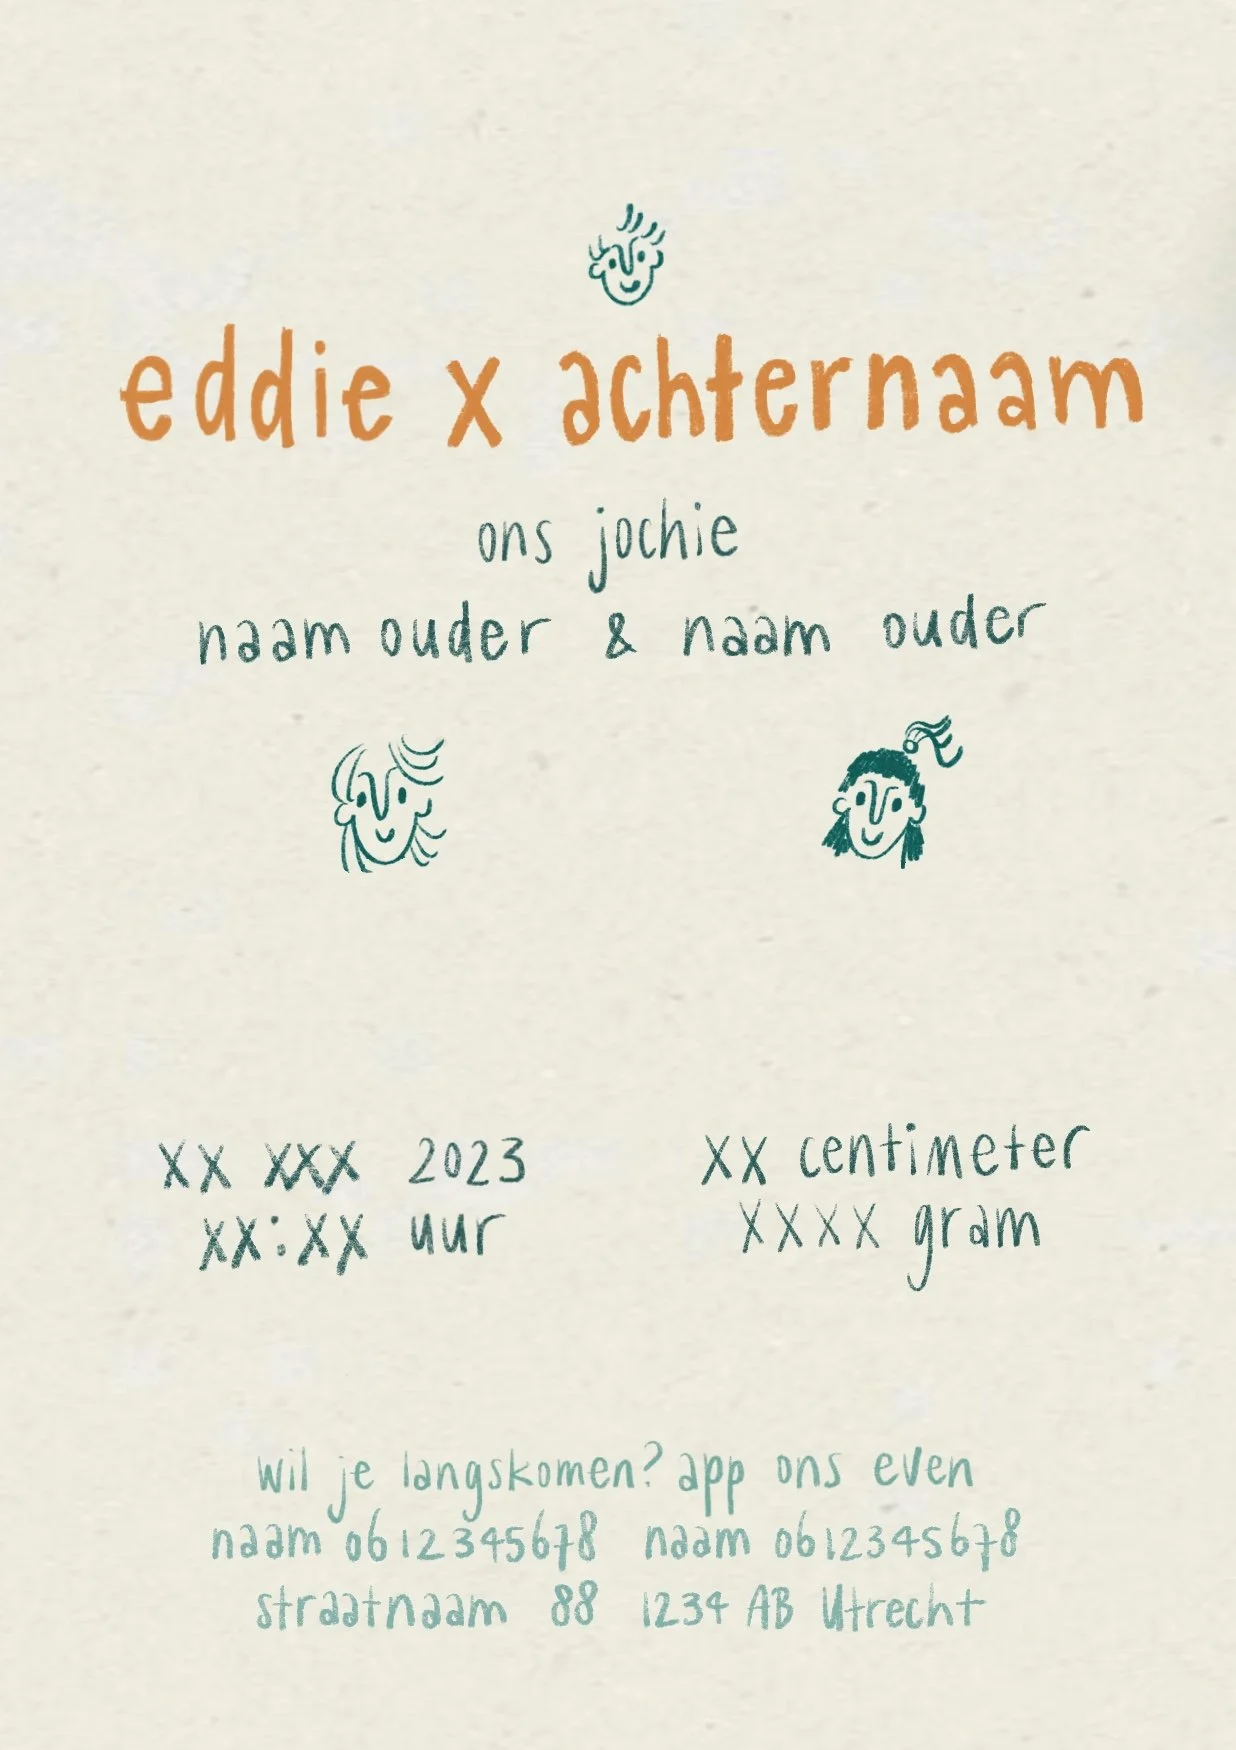 eddie x achternaam
ons jochie
naam ouder & naam ouder
xx xxx 2023
xx:xx uur
xx centimeter
xxxx gram
wil je langskomen? app ons even
naam 0612345678 naam 0612345678
straatnaam 88 1234 AB Utrecht